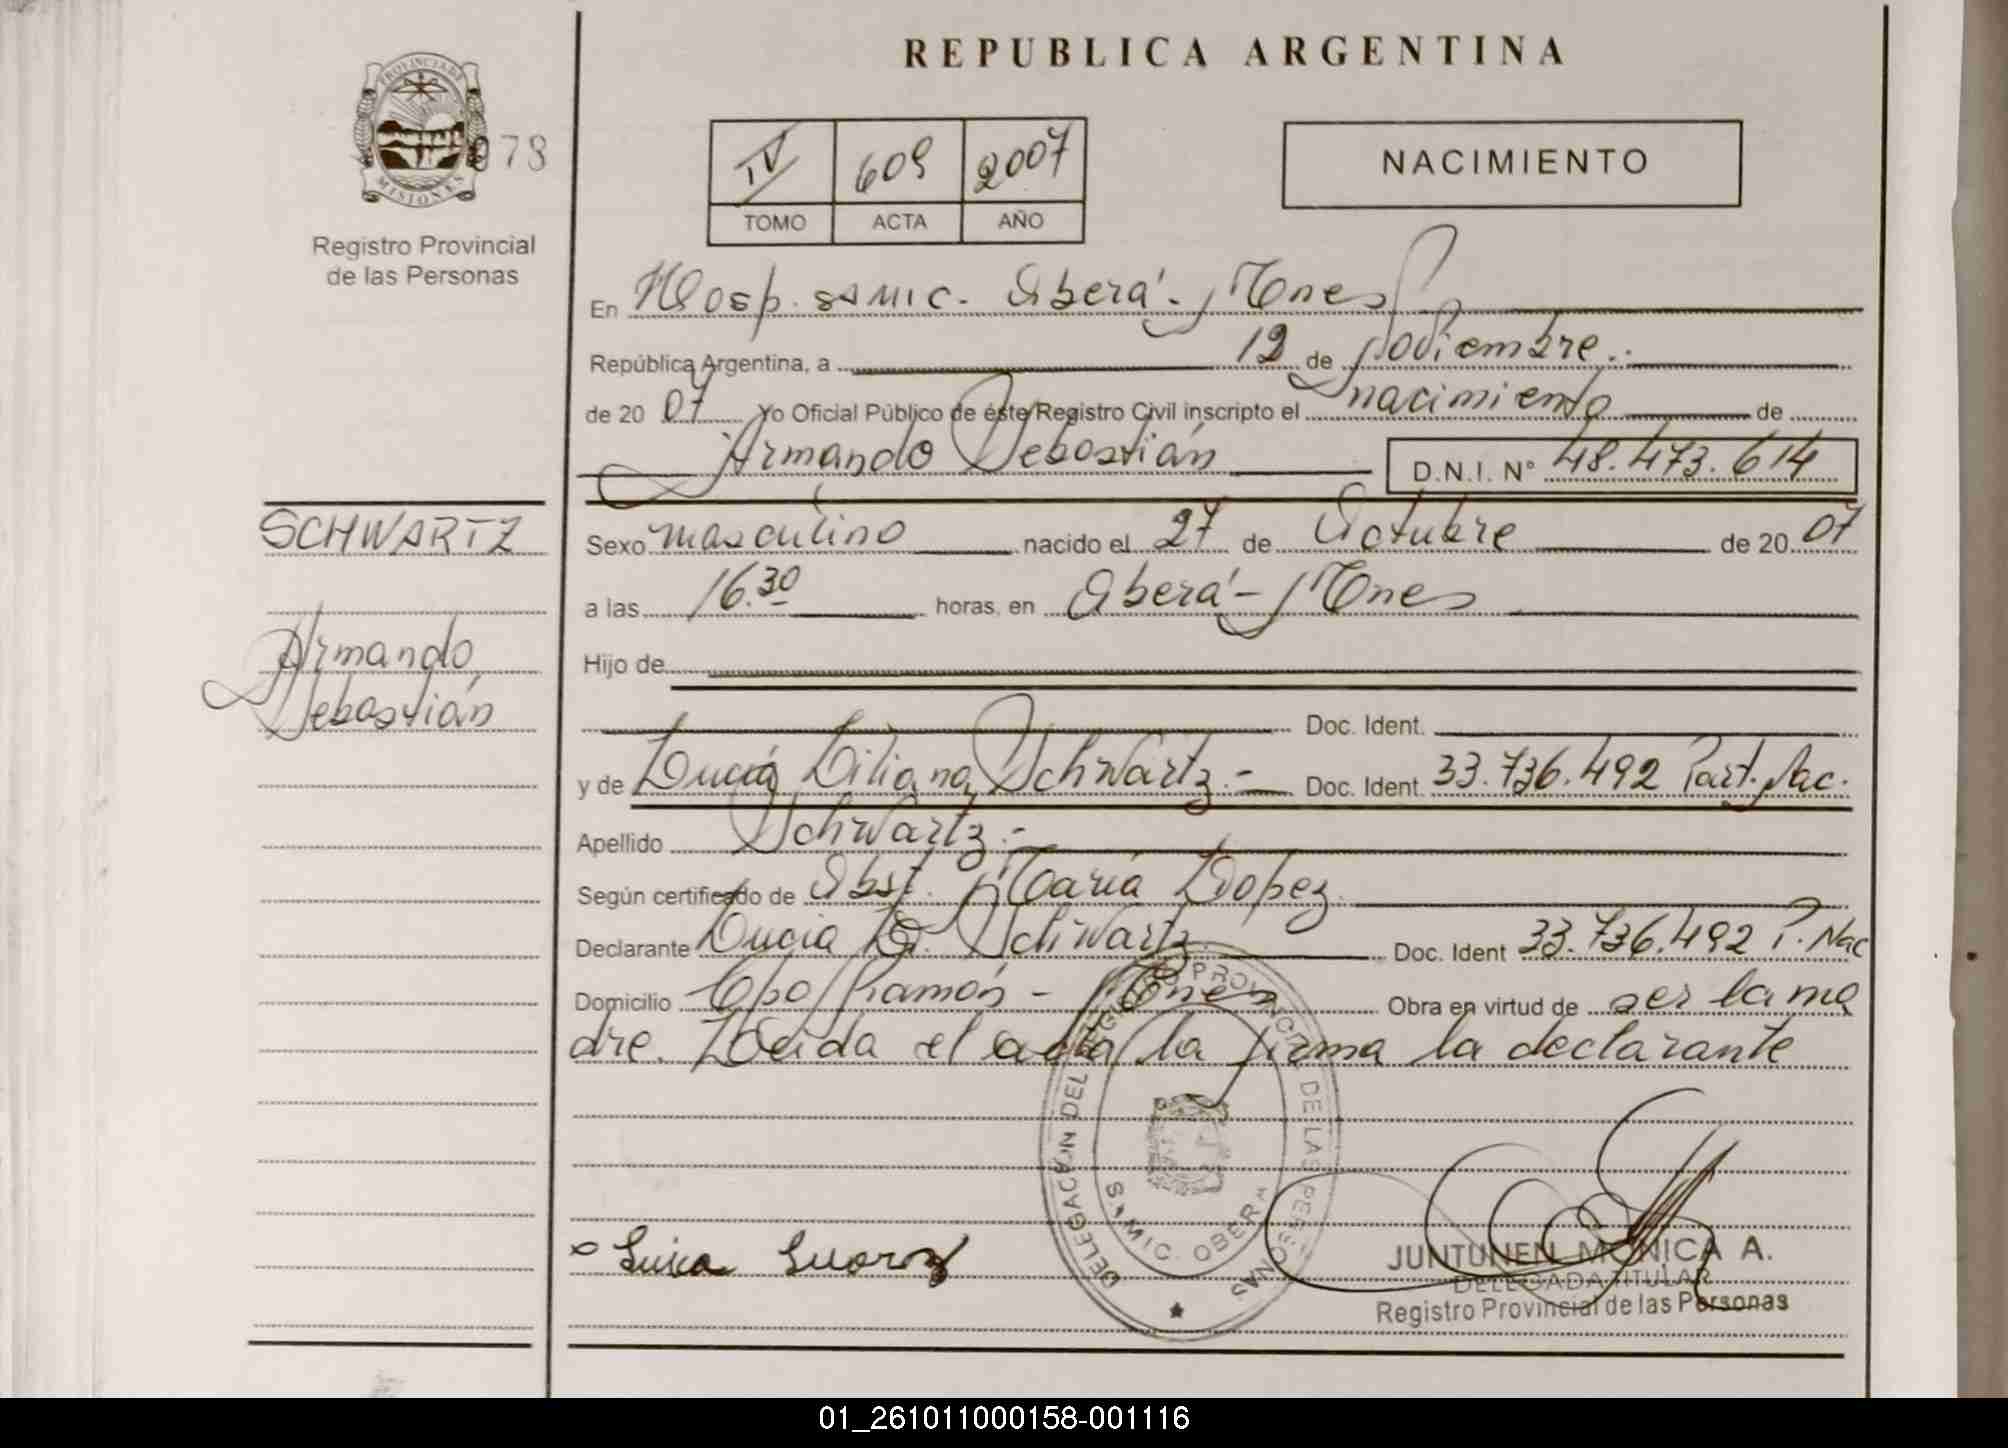 REPUBLICA ARGENTINA
PROVINCIA DE
MISIONES
078
Registro Provincial
de las Personas
IV 609 2007
TOMO ACTA AÑO
NACIMIENTO
En Hosp. SAMIC. Oberá - Mnes
República Argentina, a 12 de Noviembre.
de 20 07 Yo Oficial Público de éste Registro Civil inscripto el nacimiento de
Armando Sebastián D.N.I. N° 48.473.614
SCHWARTZ
Armando
Sebastián
Sexo masculino nacido el 27 de Octubre de 20 07
a las 16.30 horas, en Oberá - Mnes
Hijo de
Doc. Ident.
y de Lucía Liliana Schwartz.- Doc. Ident. 33.736.492 Part. Nac.
Apellido Schwartz.-
Según certificado de Obst. María Lopez
Declarante Lucia L. Schwartz. Doc. Ident 33.736.492 P. Nac
Domicilio Cpo Ramón - Mnes Obra en virtud de ser la ma
dre. Leida el acta la firma la declarante
DELEGACIÓN DEL REGISTRO PROVINCIAL DE LAS PERSONAS
SAMIC. OBERA
JUNTUNEN MONICA A.
DELEGADA TITULAR
Registro Provincial de las Personas
01_261011000158-001116